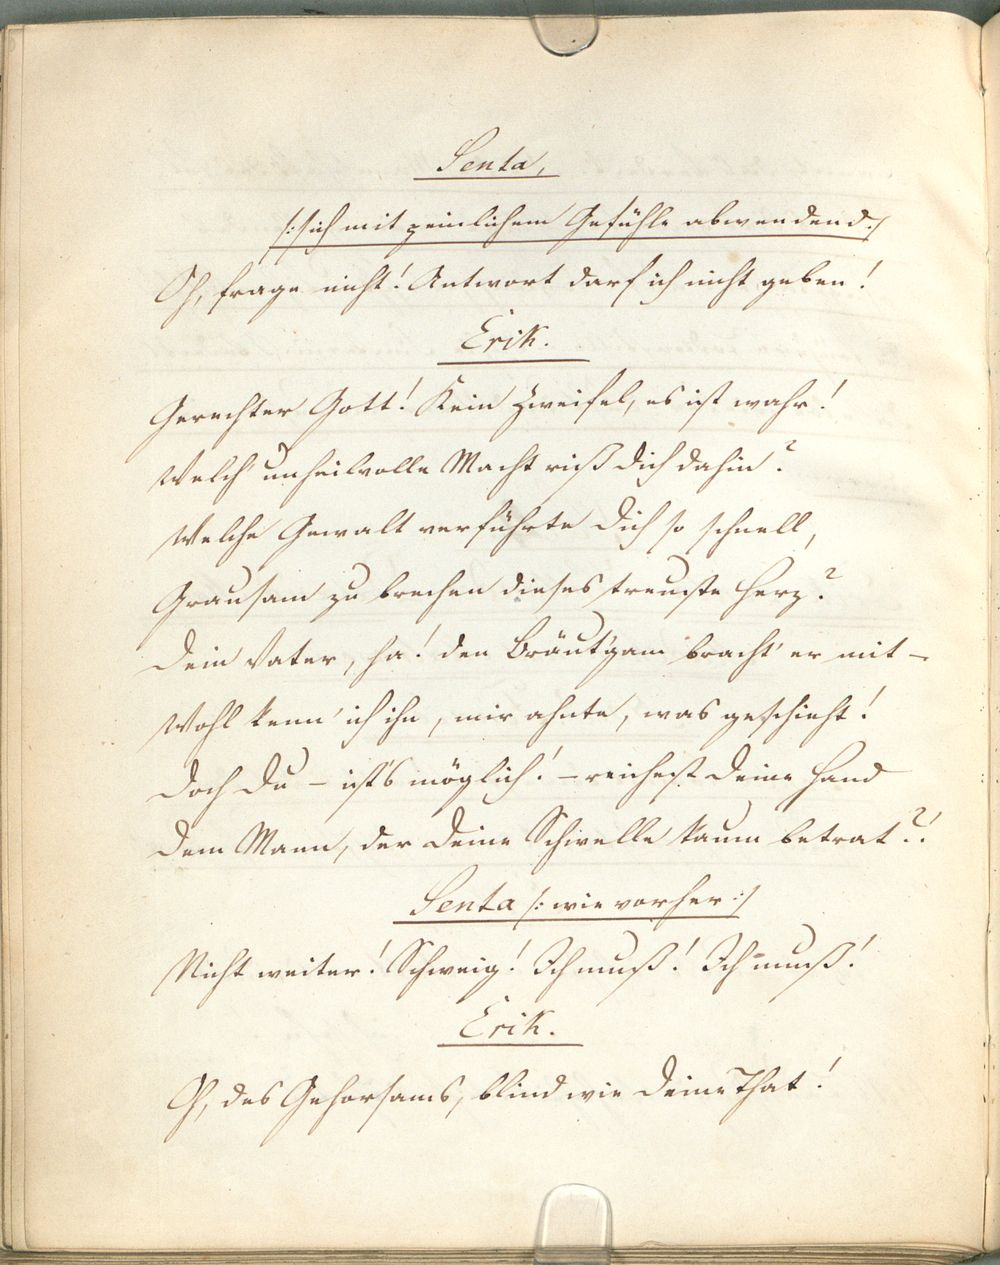 Senta,
/: sich mit peinlichem Gefühle abwendend :/
Oh, frage nicht! Antwort darf ich nicht geben!
Erik.
Gerechter Gott! Kein Zweifel, es ist wahr!
Welch' unheilvolle Macht riß dich dahin?
Welche Gewalt verführte Dich so schnell,
Grausam zu brechen dieses treuste Herz?
Dein Vater, ha! den Bräut'gam bracht' er mit –
Wohl kenn' ich ihn, mir ahnte, was geschieht!
Doch Du – ist's möglich! – reichest Deine Hand
Dem Mann, der Deine Schwelle kaum betrat?!
Senta /: wie vorher :/
Nicht weiter! Schweig! Ich muß! Ich muß!
Erik.
Oh, des Gehorsams, blind wie Deine That!